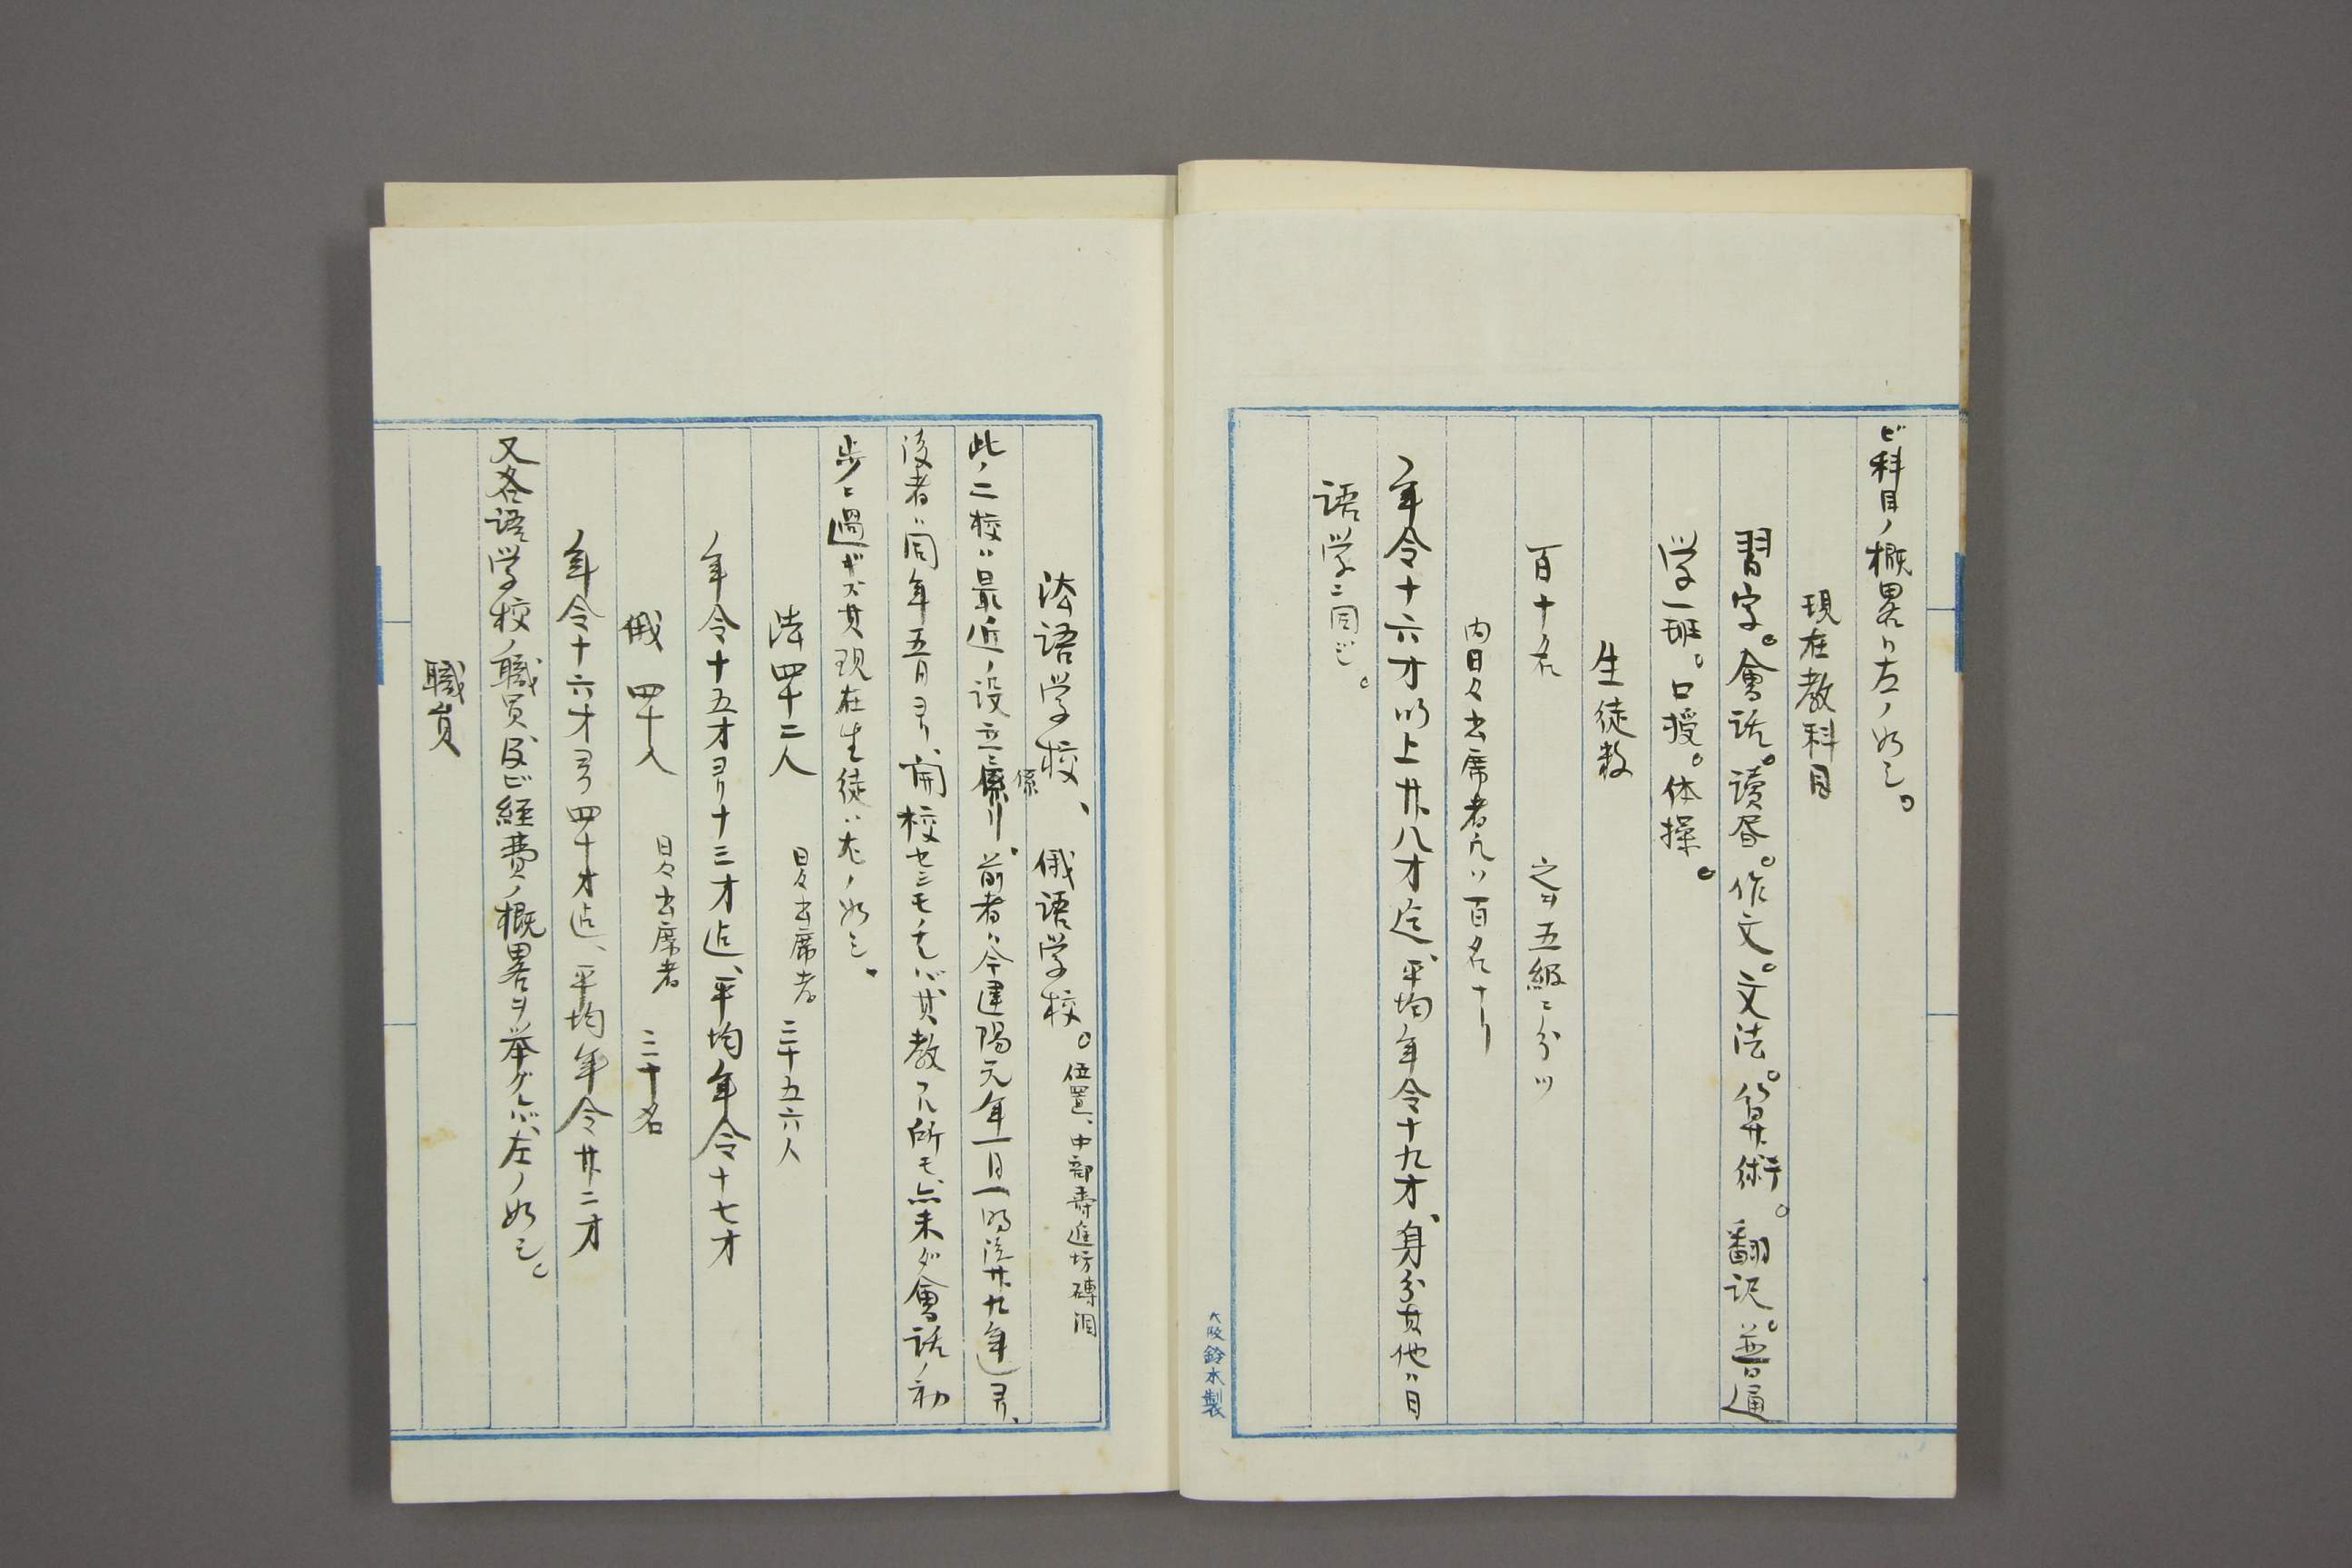 ビ科目ノ概畧ハ左ノ如シ。
現在教科目
習字。會話。讀書。作文。文法。算術。翻訳。普通
学一班。口授。体操。
生徒数
百十名　之ヲ五級ニ分ツ
内日々出席者凡ソ百名ナリ
年令十六才以上廿八才迄、平均年令十九才、身分其他ハ日
語学ニ同ジ。
大阪鈴木製
法語学校、俄語学校。位置、中部寿進坊磚洞
此ノ二校ハ最近ノ設立ニ係リ。前者ハ今建陽元年一月(明治廿九年)ヨリ、
係
後者ハ同年五月ヨリ、開校セシモノナレバ其教フル所モ、亦未ダ會話ノ初
歩ニ過ギズ其現在生徒ハ左ノ如シ。
法四十二人　日々出席者　三十五六人
年令十五才ヨリ十三才迄、平均年令十七才
俄　四十人　日々出席者　三十名
年令十六才ヨリ四十才迄、平均年令廿二才
又各語学校ノ職員及ビ経費ノ概畧ヲ挙グレバ左ノ如シ。
職員